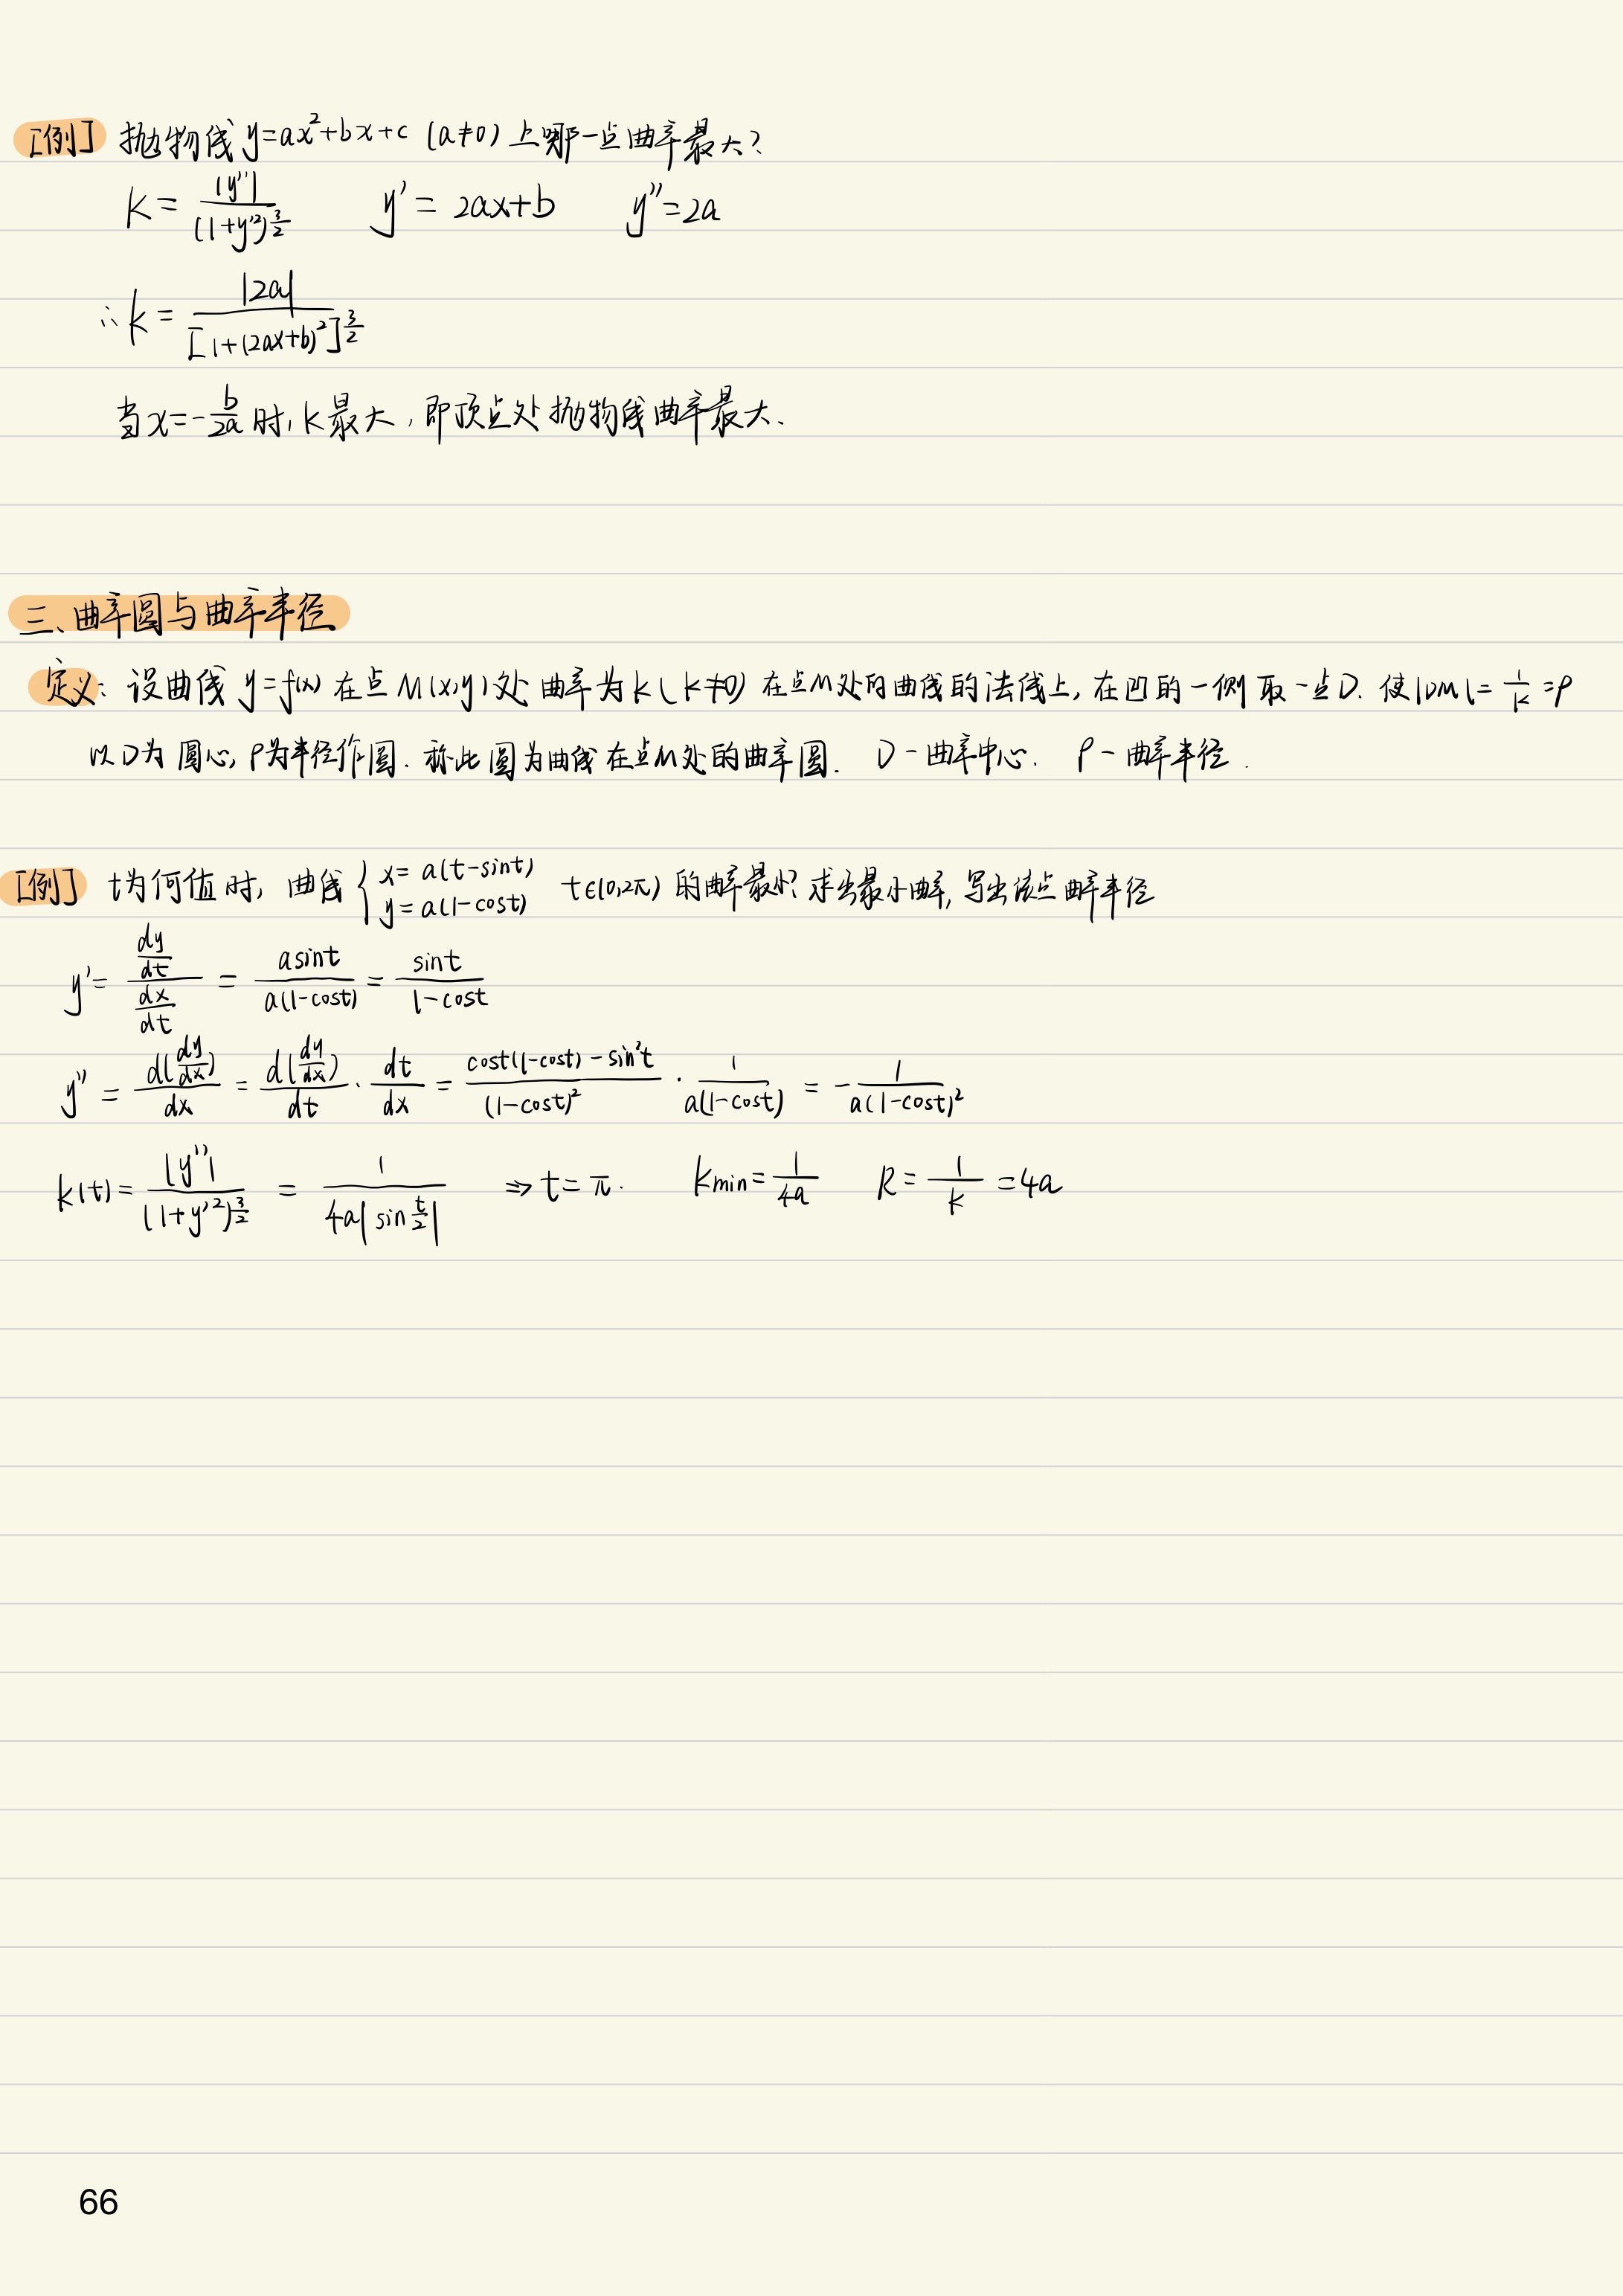 [例] 抛物线 y=ax²+bx+c (a≠0) 上哪一点曲率最大?
K = |y''| / (1+y'²)^(3/2)    y' = 2ax+b    y''=2a
∴ k = |2a| / [1+(2ax+b)²]^(3/2)
当 x=-b/2a 时, k 最大, 即顶点处抛物线曲率最大.
三、曲率圆与曲率半径
定义: 设曲线 y=f(x) 在点 M(x,y) 处曲率为 k (k≠0) 在点M处的曲线的法线上, 在凹的一侧取一点D. 使|DM|=1/k=ρ
以D为圆心, ρ为半径作圆. 称此圆为曲线在点M处的曲率圆. D-曲率中心. ρ-曲率半径.
[例] t为何值时, 曲线 { x=a(t-sint) y=a(1-cost) t∈(0,2π) 的曲率最小? 求出最小曲率, 写出该点曲率半径
y' = (dy/dt)/(dx/dt) = asint/a(1-cost) = sint/1-cost
y'' = d(dy/dx)/dx = d(dy/dx)/dt · dt/dx = cost(1-cost)-sin²t/(1-cost)² · 1/a(1-cost) = -1/a(1-cost)²
k(t) = |y''|/(1+y'²)^(3/2) = 1/4a|sin t/2| ⇒ t=π. Kmin=1/4a R=1/k=4a
66